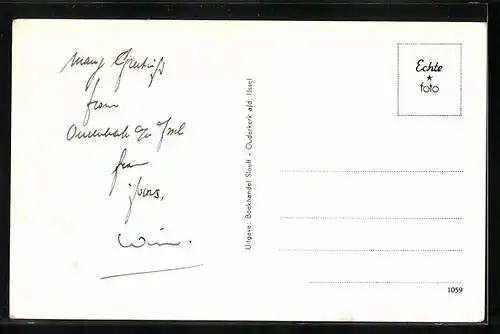 Many Greetings
from
Ouderkerk a/d IJsel
from
yours,
Wim.
Uitgave: Boekhandel Slooff - Ouderkerk a/d. IJssel
Echte
*
foto
1059